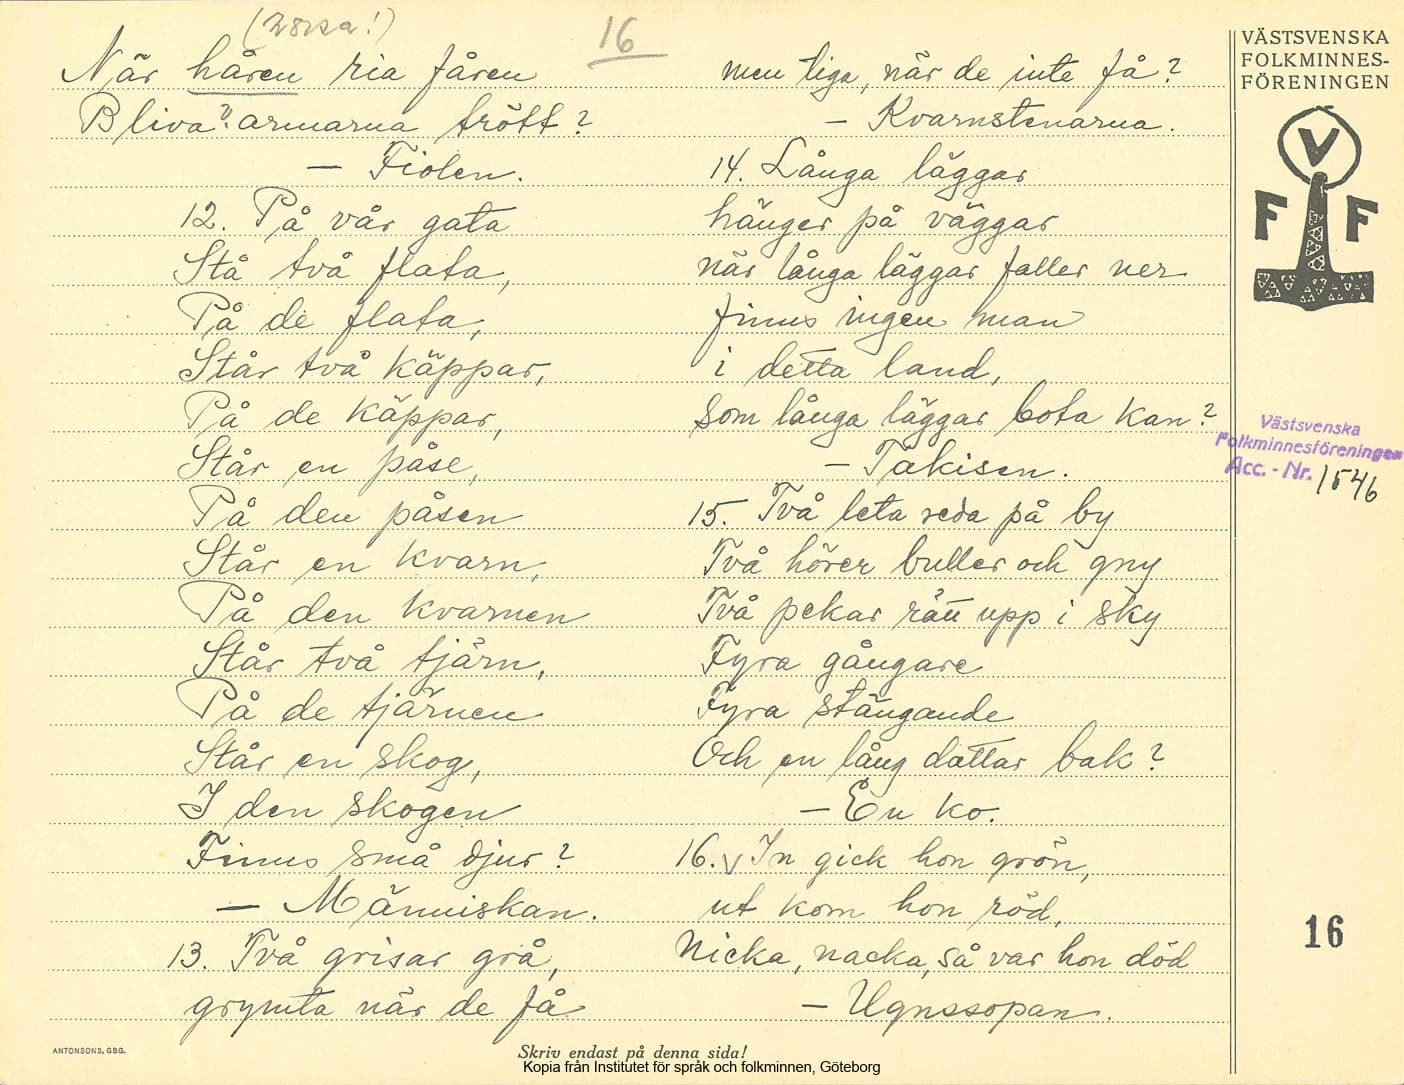 16
När håren ria fåren
Bliva? armarna trött?
— Fiolen.
12. På vår gata
Stå två flata,
På de flata,
Står två käppar,
På de käppar,
Står en påse,
På den påsen
Står en kvarn,
På den kvarnen
Står två tjärn,
På de tjärnen
Står en skog,
I den skogen
Finns små djur?
— Människan.
13. Två grisar grå,
grymta när de få
men tiga, när de inte få?
— Kvarnstenarna.
14. Långa läggar
hänger på väggar
när långa läggar faller ner
finns ingen man
i detta land,
som långa läggar bota kan?
— Takisen.
15. Två leta reda på by
Två hörer buller och gny
Två pekar rätt upp i sky
Fyra gångare
Fyra stängande
Och en lång dattar bak?
— En ko.
16. V In gick hon grön,
ut kom hon röd,
Nicka, nacka, så var hon död
— Ugnssopan.
VÄSTSVENSKA
FOLKMINNES-
FÖRENINGEN
V
F F
Västsvenska
Folkminnesföreningen
Acc. - Nr. 1546
16
ANTONSONS, GBG.
Skriv endast på denna sida!
Kopia från Institutet för språk och folkminnen, Göteborg